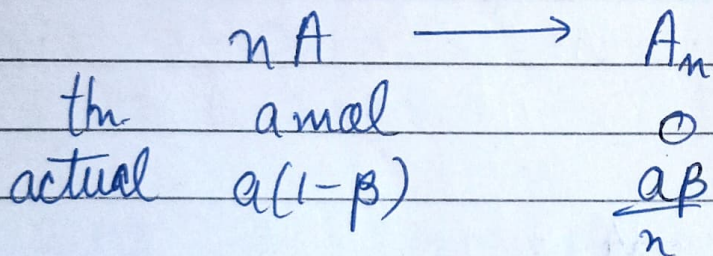 nA ⟶ Aₙ
th. a mol 0
actual a(1-β) aβ/n